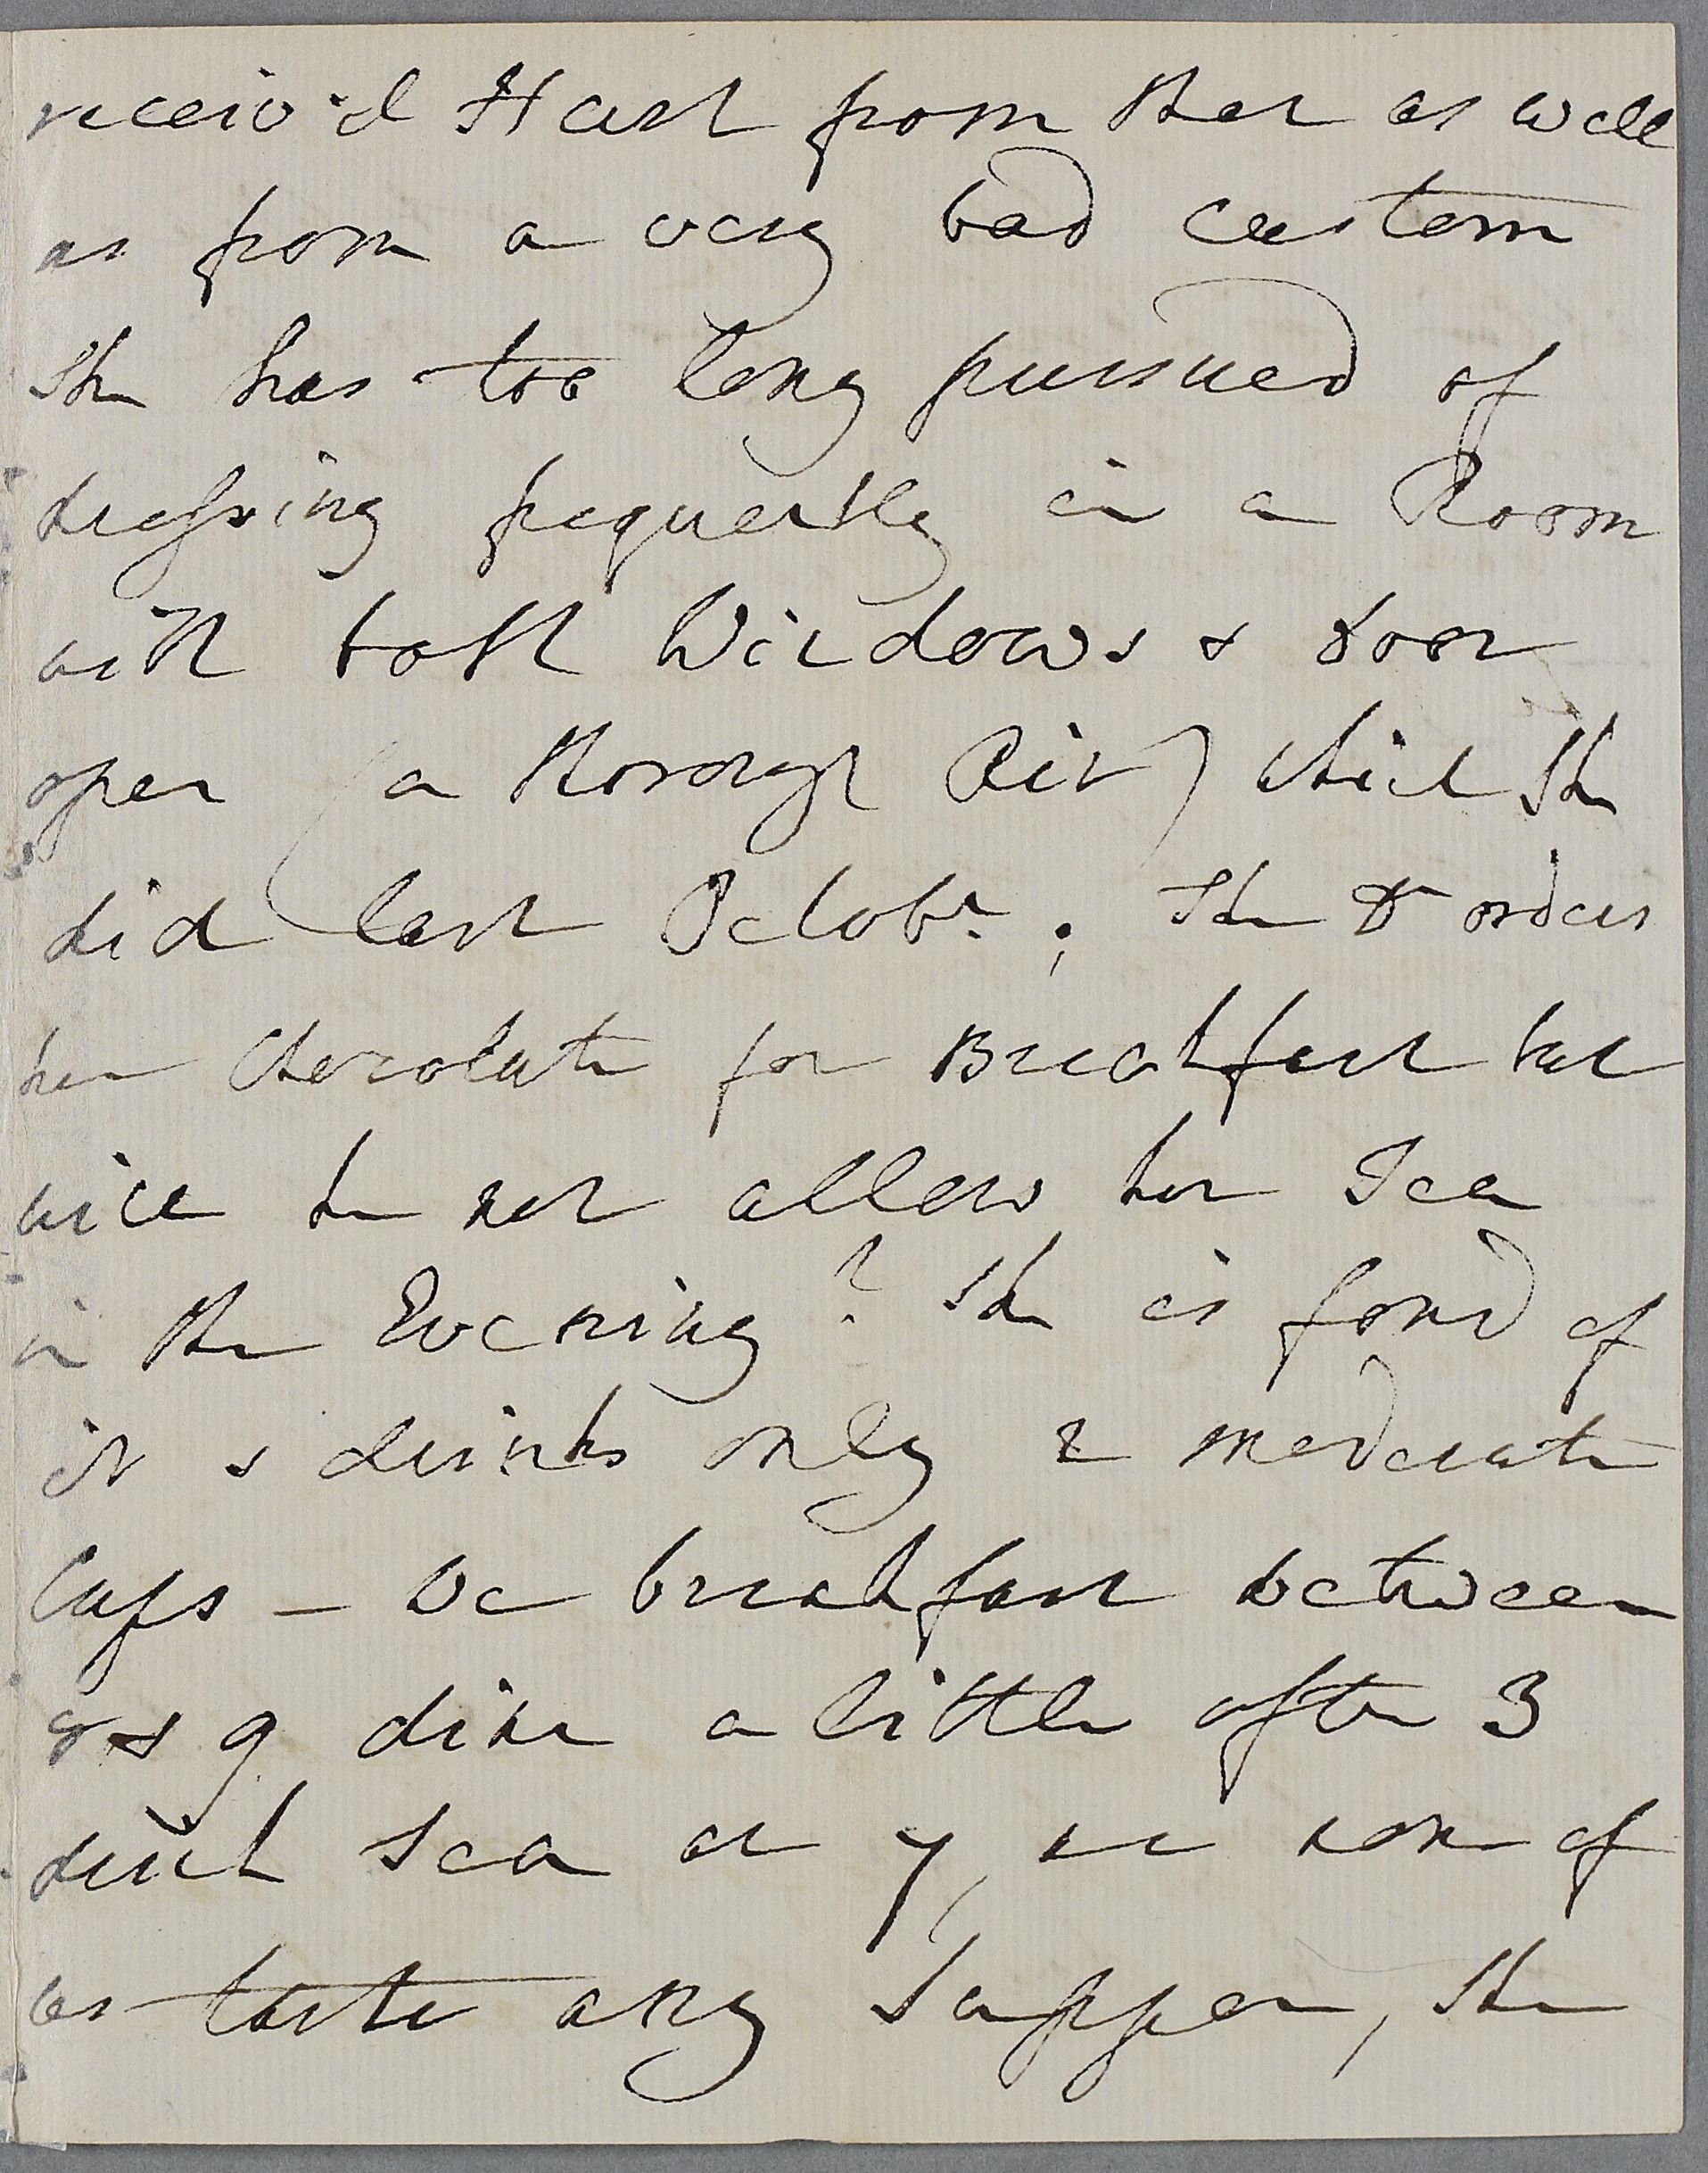 receiv'd Hurt from that as well
as from a very bad custom
She has too long pursued of
dressing frequently in a Room
with both Windows & door
open (a thorough Air) which She
did last Octobr. ; The Dr orders
her Chocolate for Breakfast but
will he not allow her Tea
in the Evening? She is fond of
it & drinks only 2 moderate
Cups – We breakfast between
8 & 9 dine a little after 3
drink Tea at 7, nor none of
us taste any Supper, the